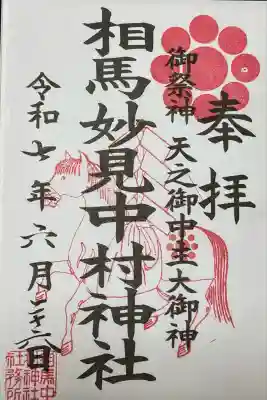 奉拝
御祭神 天之御中主大御神
相馬妙見中村神社
令和七年六月二十八日
相馬中村神社社務所